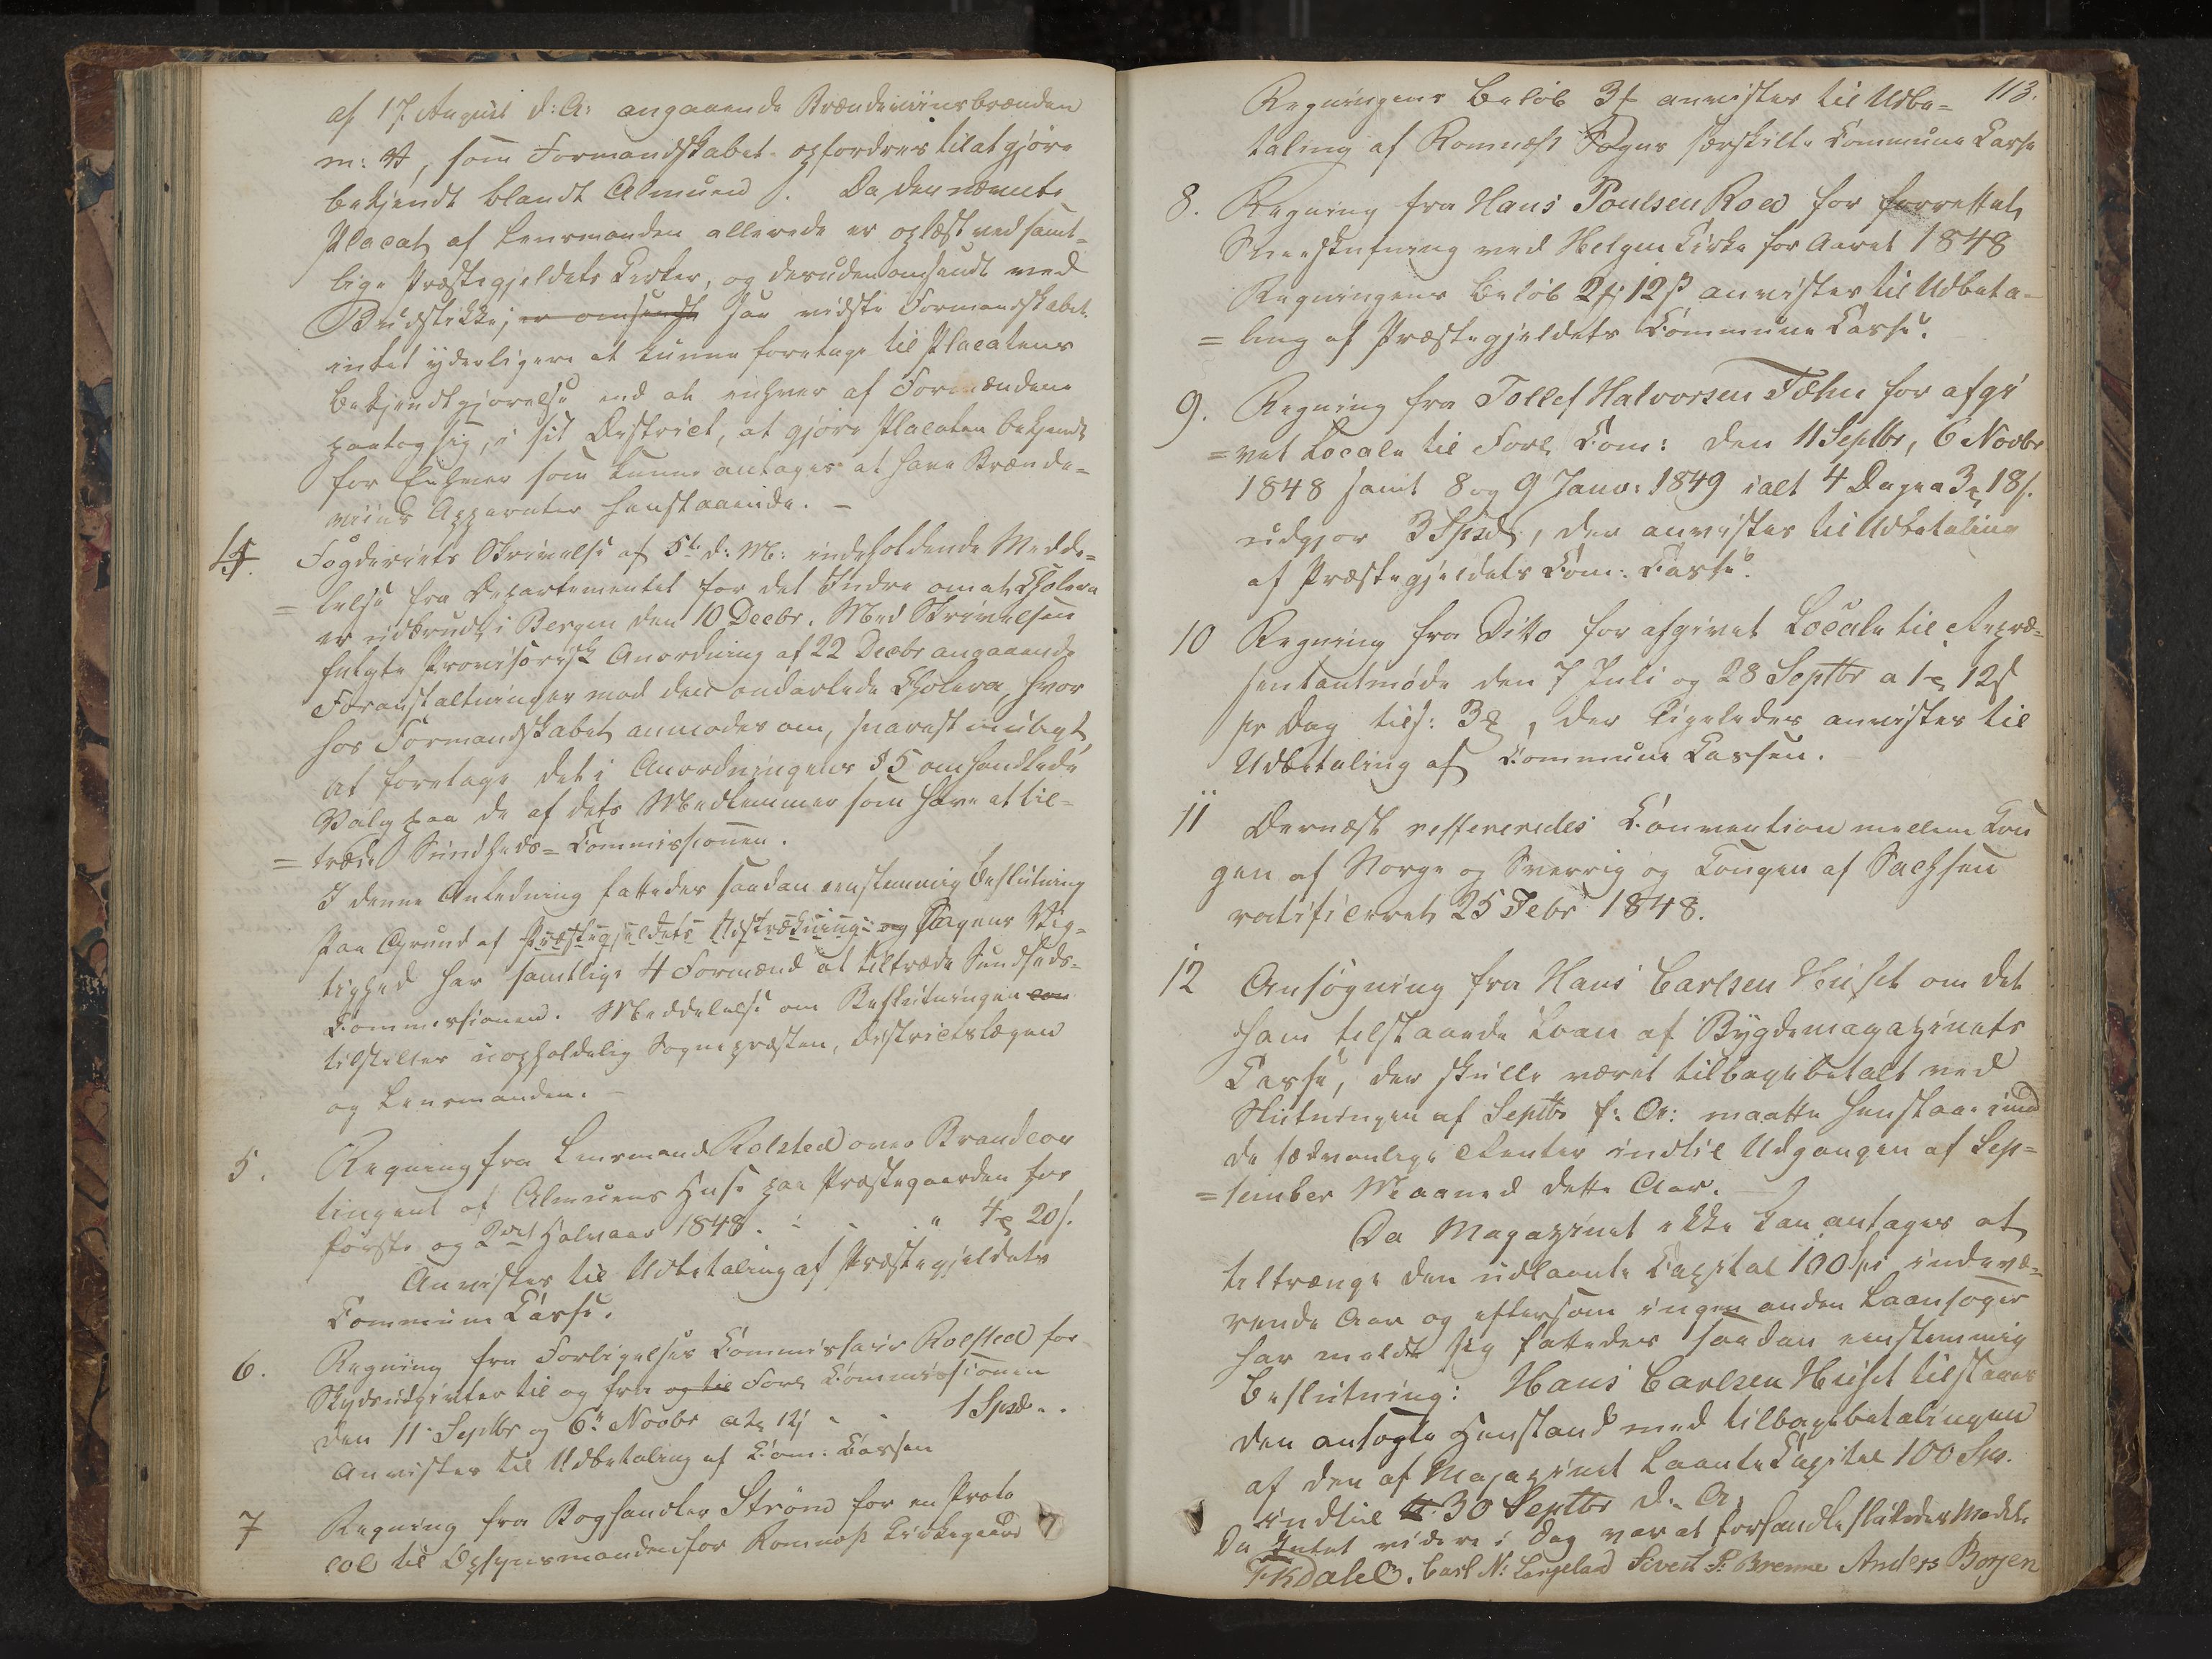 af 17 August d: A: angaaende Brændeviinsbrænden
m: v, som Formandskabet opfordres til at gjøre
bekjendt blandt Almuen. Da den nævnte
Placat af Lensmanden allerede er oplæst ved samt-
lige Præstegjeldets Kirker, og desuden omsendt ved
Budstikke, er omsendt saa vidste Formandskabet
intet yderligere at kunne foretage til Placatens
Bekjendtgjørelse end at enhver af Formændene
paatog sig, i sit District, at gjøre Placaten bekjendt
for Enhver som kunne antages at have Brænde-
viins Apparater henstaaende. -
4. Fogderiets Skrivelse af 5te d: M: indeholdende Medde-
= lelse fra Departementet for det Indre om at Cholera
er udbrudt i Bergen den 10 Decbr. Med Skrivelsen
fulgte Provisorisk Anordning af 22 Decbr angaaende
Foranstaltninger mod den ondartede Cholera, hvor
hos Formandskabet anmodes om, snarest muligt
at foretage det i Anordningens § 5 omhandlede
Valg paa de af dets Medlemmer som have at til-
= træde Sundheds-Commissionen.
I denne Anledning fattedes saadan eenstemmig Beslutning
Paa Grund af Præstegjeldets Udstrækning og Sagens Vig-
tighed har samtlige 4 Formænd at tiltræde Sundheds-
Commissionen. Meddelelse om Beslutningen
tilstilles uopholdelig Sognepræsten, Districtslægen
og Lensmanden. -
5. Regning fra Lensmand Rolsted over Brandcon
tingent af Almuens Huse paa Præstegaarden for
første og 2det Halvaar 1848. - - " 20 s.
Anvistes til Udbetaling af Præstegjeldets
Commune Casse.
6. Regning fra Forligelses Commissair Rolsted for
Skydsudgivter til og fra og til Forl Commissionen
den 11 Septbr og 6te Novbr - - 1 Spd..
Anvistes til Udbetaling af Com: Cassen
7 Regning fra Boghandler Strøm for en Proto
col til Opsynsmanden for Romnæs Kirkegaard
113.
Regningens Beløb anvistes til Udbe-
taling af Romnæs Sogns særskilte Commune Casse
8. Regning fra Hans Poulsen Roe for forrettet
Sneeskufning ved Helgen Kirke for Aaret 1848
Regningens Beløb 12 s anvistes til Udbeta-
= ling af Præstegjeldets Commune Casse.
9. Regning fra Tollef Halvorsen Tæhn for afgi
= vet Locale til Forl. Com: den 11 Septbr, 6 Novbr
1848 samt 8 og 9 Janv: 1849 ialt 4 Dage a 18 s.
udgjør 3 Spd, der anvistes til Udbetaling
af Præstegjeldets Com: Casse.
10 Regning fra Dito for afgivet Locale til Repræ-
sentantmøde den 7 Juli og 28 Septbr a 12 s
pr Dag tils: 3, der ligeledes anvistes til
Udbetaling af Commune Cassen.
11 Dernæst reffereredes Convention mellem Kon
gen af Norge og Sverrig og Kongen af Sachsen
ratificeret 25 Febr 1848.
12 Ansøgning fra Hans Carlsen Huset om det
ham tilstaaede Laan af Bygdemagazinets
Casse, der skulle været tilbagebetalt ved
Slutningen af Septbr f: A: maatte henstaae imod
de sædvanlige Renter indtil Udgangen af Sep-
= tember Maaned dette Aar.
Da Magazinet ikke kan antages at
tiltrænge den udlaante Capital 100 Spd indevæ-
rende Aar og eftersom ingen anden Laansøger
har meldt sig fattedes saadan eenstemmig
Beslutning: Hans Carlsen Huset tilstaaes
den ansøgte Henstand med tilbagebetalingen
af den af Magazinet laante Capital 100 Spd.
indtil 30 Septbr d. A.
Da Intet videre i Dag var at forhandle sluttedes Mødet.
Carl N: Langeland Sivert P: Brenne Anders Borgen